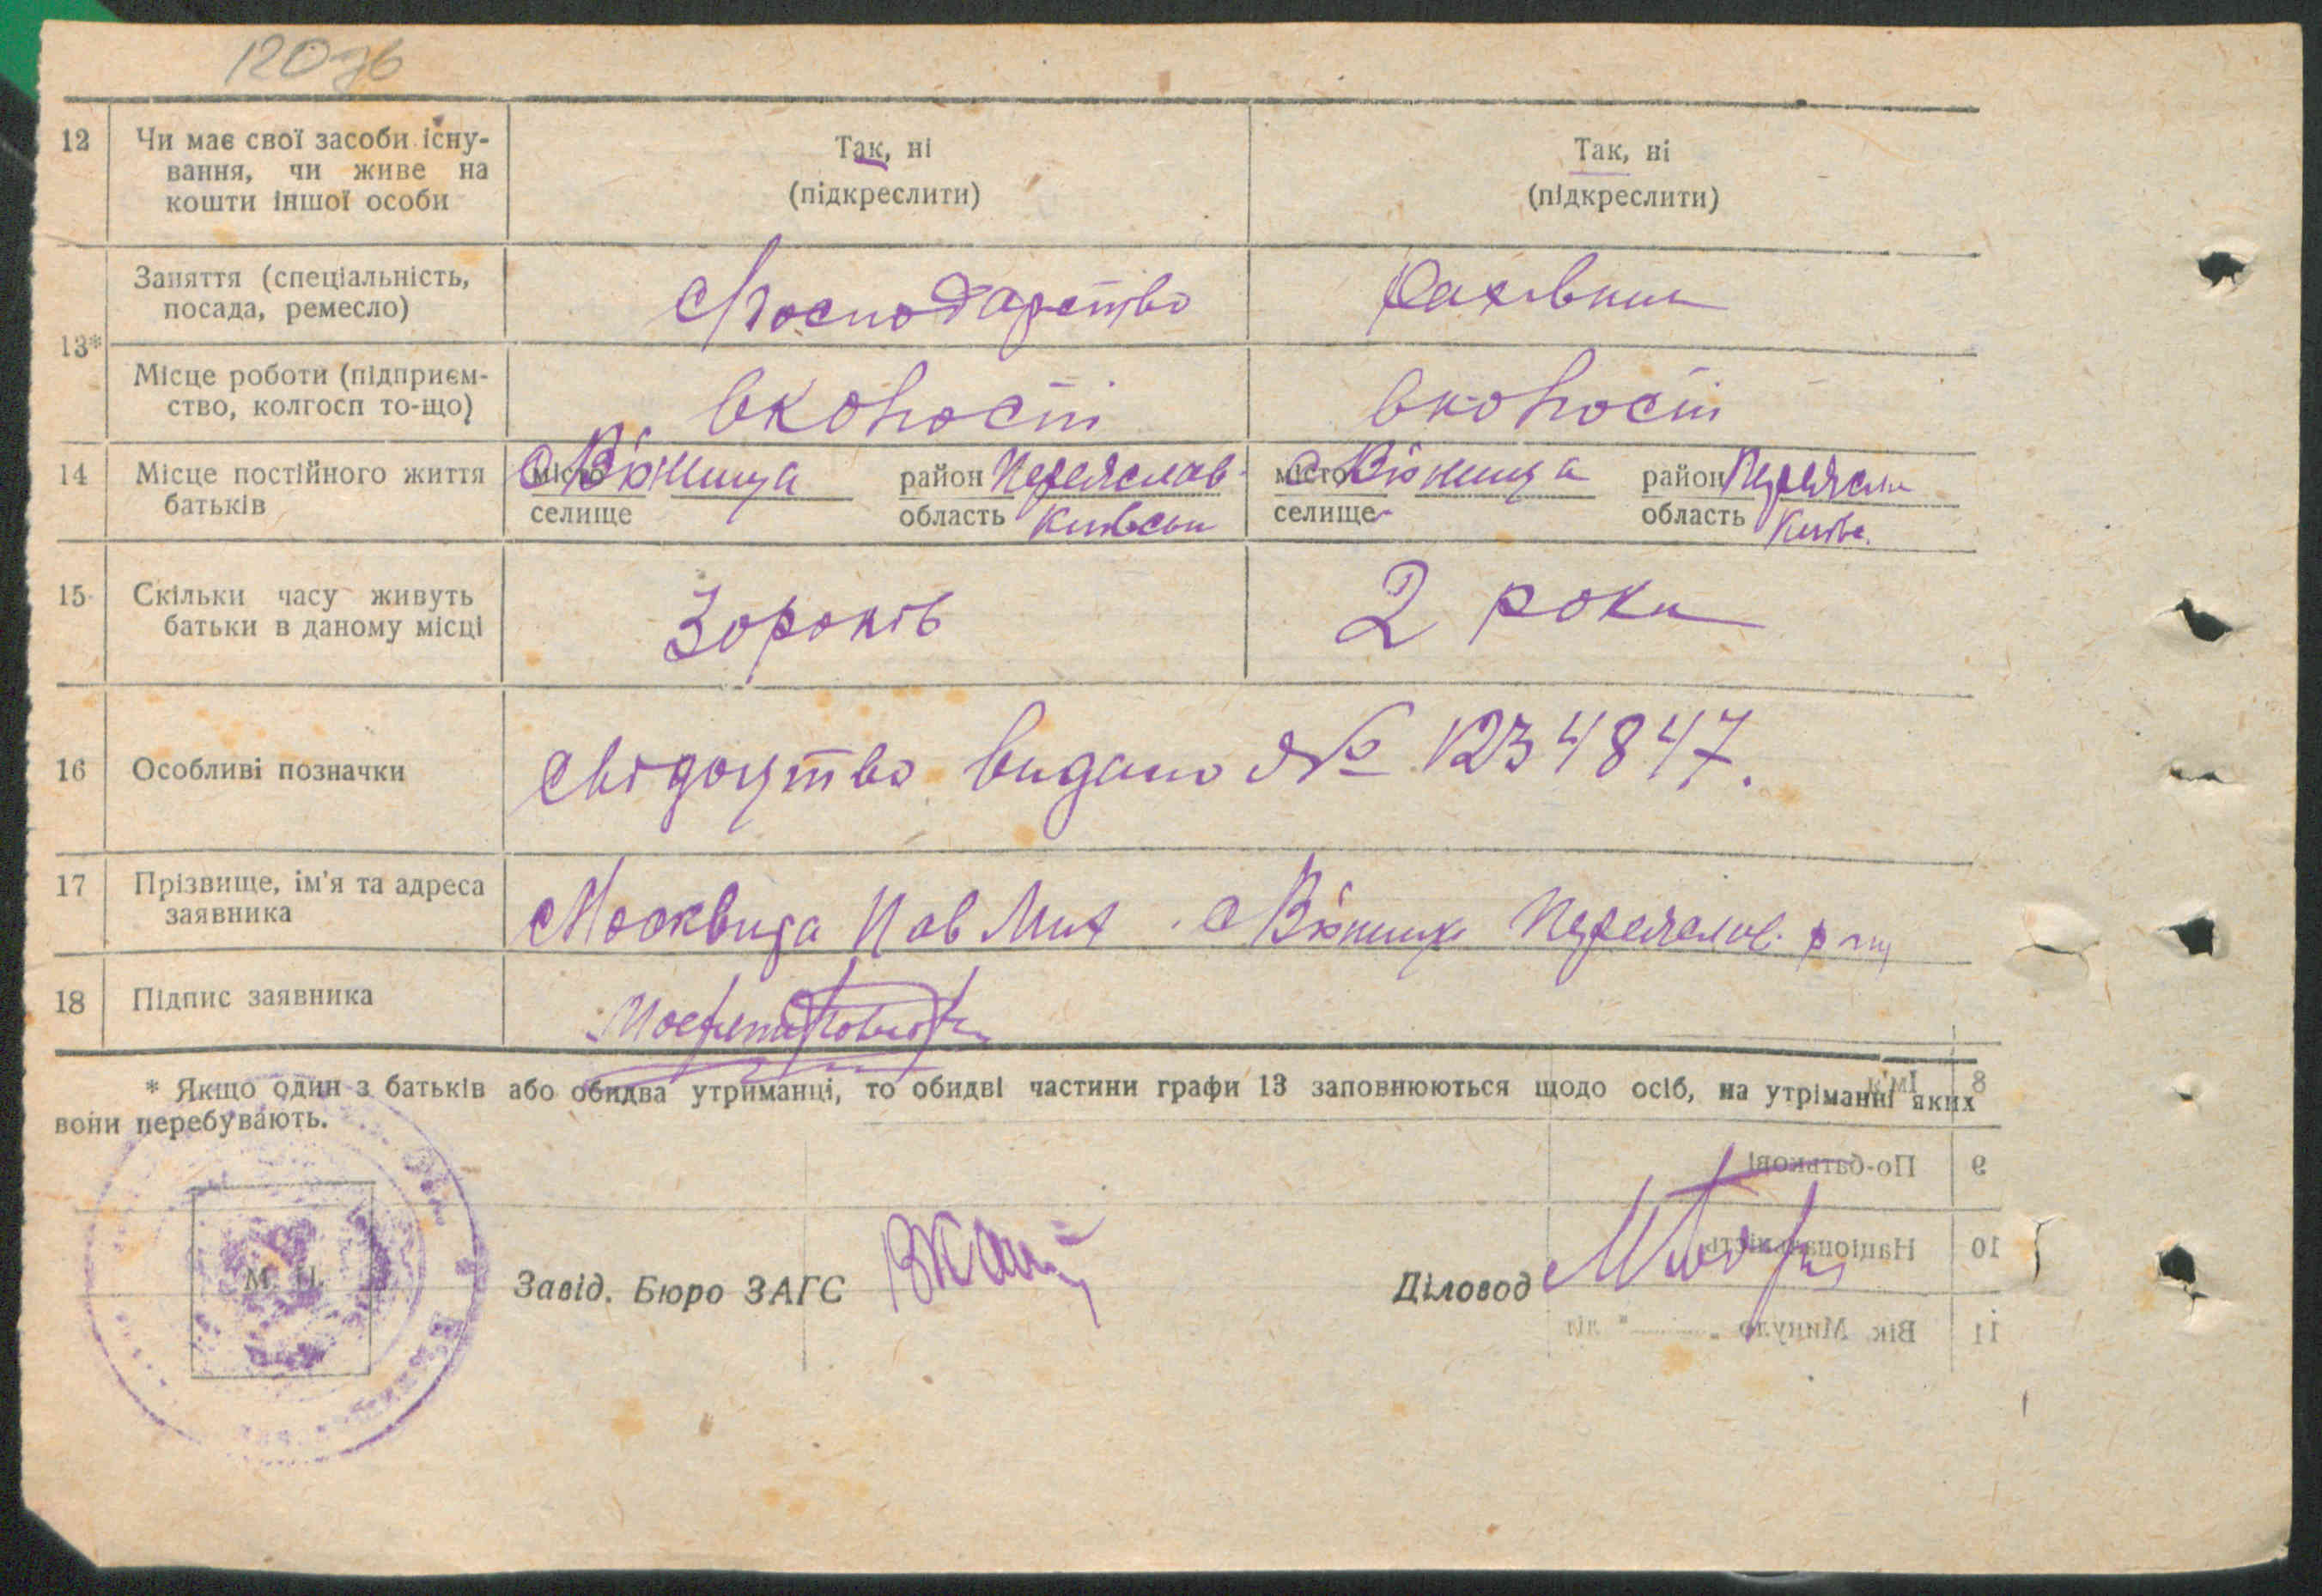 120зв
12 Чи має свої засоби існу- Так, ні Так, ні
вання, чи живе на (підкреслити) (підкреслити)
кошти іншої особи
13* Заняття (спеціальність, Господарство
посада, ремесло)
Місце роботи (підприєм-
ство, колгосп то-що)
14 Місце постійного життя місто с Вюнища район Переяслав місто с Вюнища район
батьків селище область Київськ селище область Київс.
15 Скільки часу живуть 30 років 2 роки
батьки в даному місці
16 Особливі позначки свідоцтво видано № 1234847.
17 Прізвище, ім'я та адреса Пав Мих с Вюнища
заявника
18 Підпис заявника
* Якщо один з батьків або обидва утриманці, то обидві частини графи 13 заповнюються щодо осіб, на утріманні яких
вони перебувають.
М. П.
Завід. Бюро ЗАГС Діловод
8 Ім'я
9 По-батькові
10 Національність
11 Вік. Минуло "—" літ